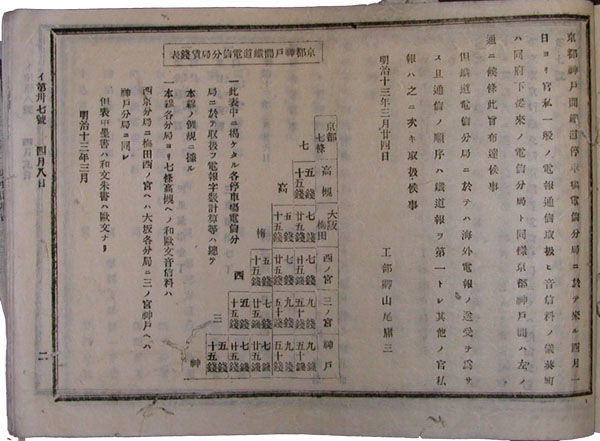 京都神戸間鐵道停車塲電信分局ニ於テ來ル四月一
日ヨリ官私一般ノ電報通信取扱ヒ音信料ノ儀葵町
ハ同府下從來ノ電信分局ト同樣京都神戸間ハ左ノ
通ニ候條此旨布達候事
但鐵道電信分局ニ於テハ海外電報ノ送受ヲ爲サ
ス且通信ノ順序ハ鐵道報ヲ第一トシ其他ノ官私
報ハ之ニ次キ取扱候事
明治十三年三月廿四日
工部卿山尾庸三
京都神戸間鐵道電信分局賃錢表
京都七條
七
高槻
五錢 十五錢
高
大阪梅田
七錢 廿五錢
五錢 十五錢
梅
西ノ宮
七錢 廿五錢
五錢 十五錢
西
三ノ宮
九錢
五錢 十五錢
三
神戸
九錢
七錢 廿五錢
五錢 十五錢
神
一此表中ニ掲ケタル各停車塲電信分
局ニ於テ取扱フ電報字數計算等ハ總テ
本線ノ例規ニ據ル
一本線各分局ヨリ七條高槻ヘノ和歐文音信料ハ
西京分局ニ梅田西ノ宮ヘハ大坂各分局ニ三ノ宮神戸ヘハ
神戸分局ニ同シ
但表中墨書ハ和文朱書ハ歐文ナリ
明治十三年三月
イ第卅七號 四月八日
二